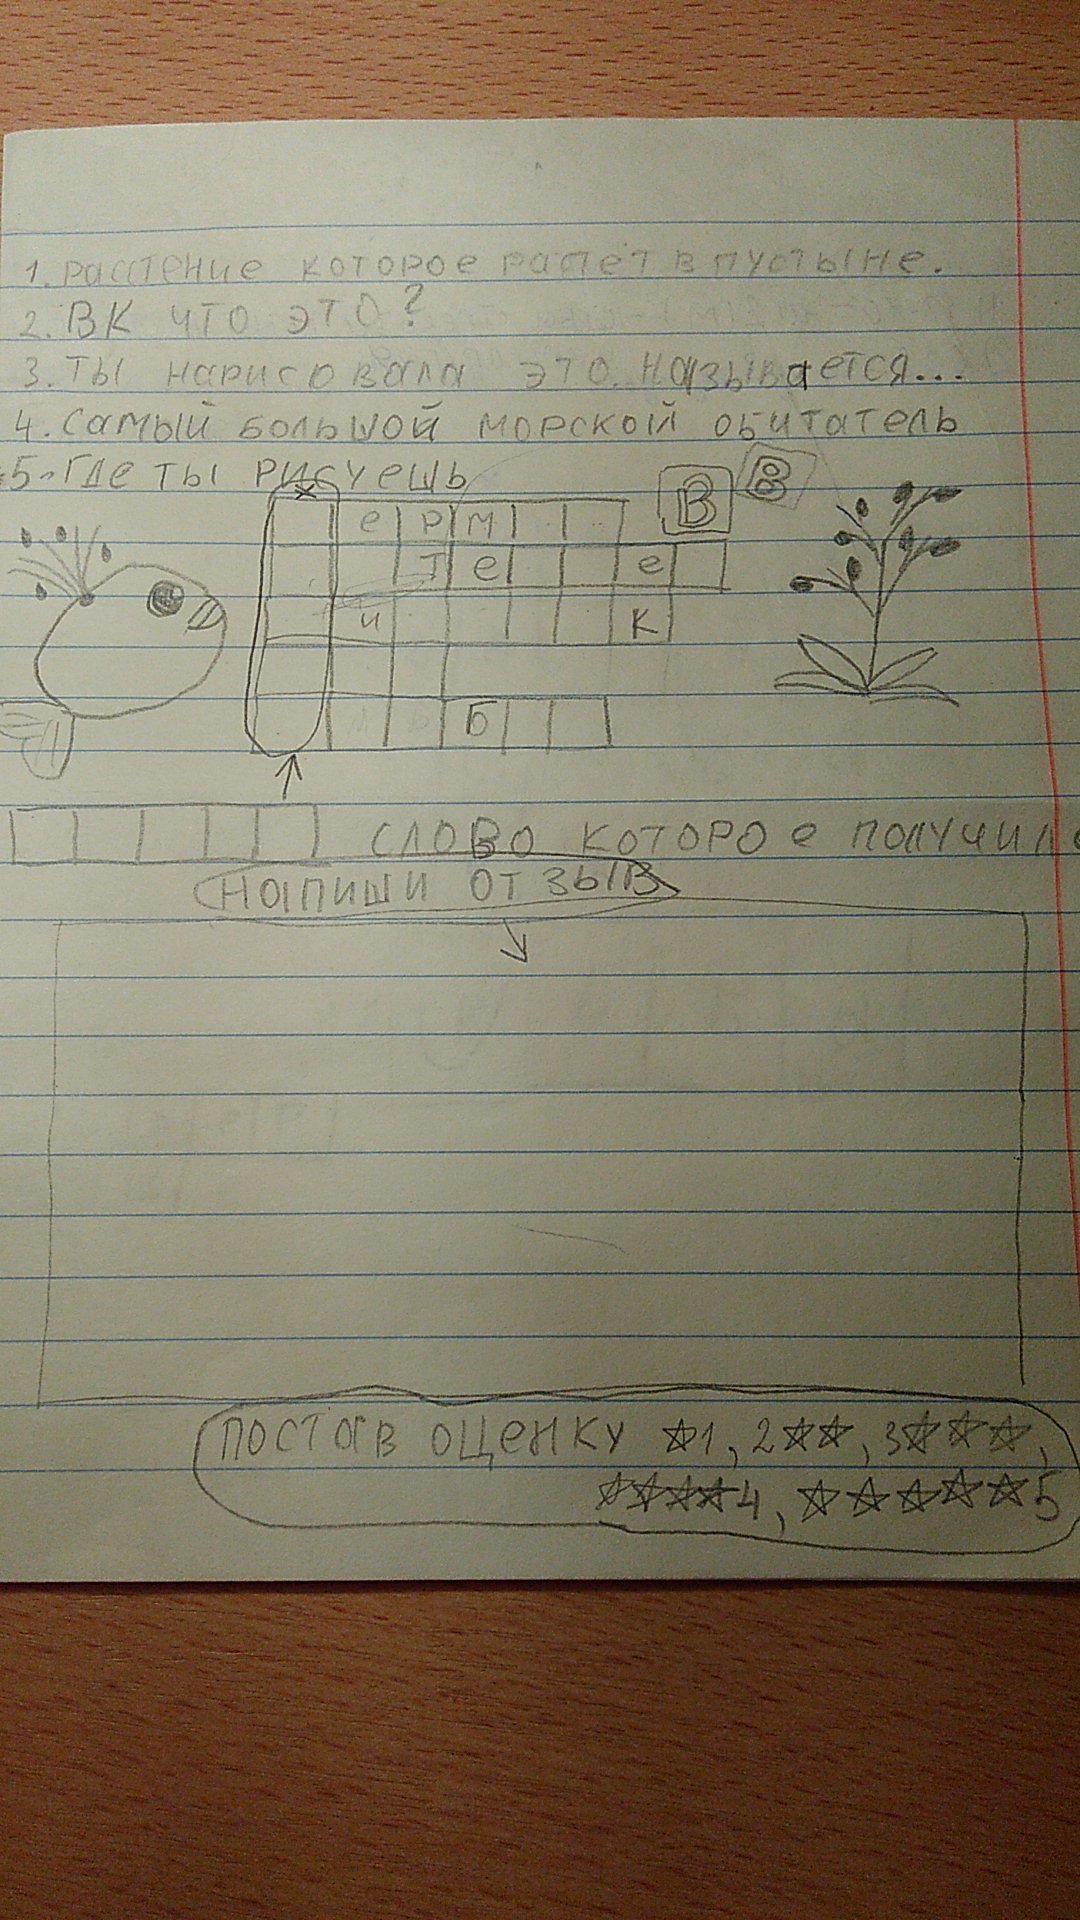 1. растение которое растёт в пустыне.
2. ВК что это?
3. ты нарисовала это называется...
4. самый большой морской обитатель
5. Где ты рисуешь
е р м В В
т е е
и к
Б
слово которое получило
напиши отзыв
поставь оценку 1, 2, 3,
4, 5